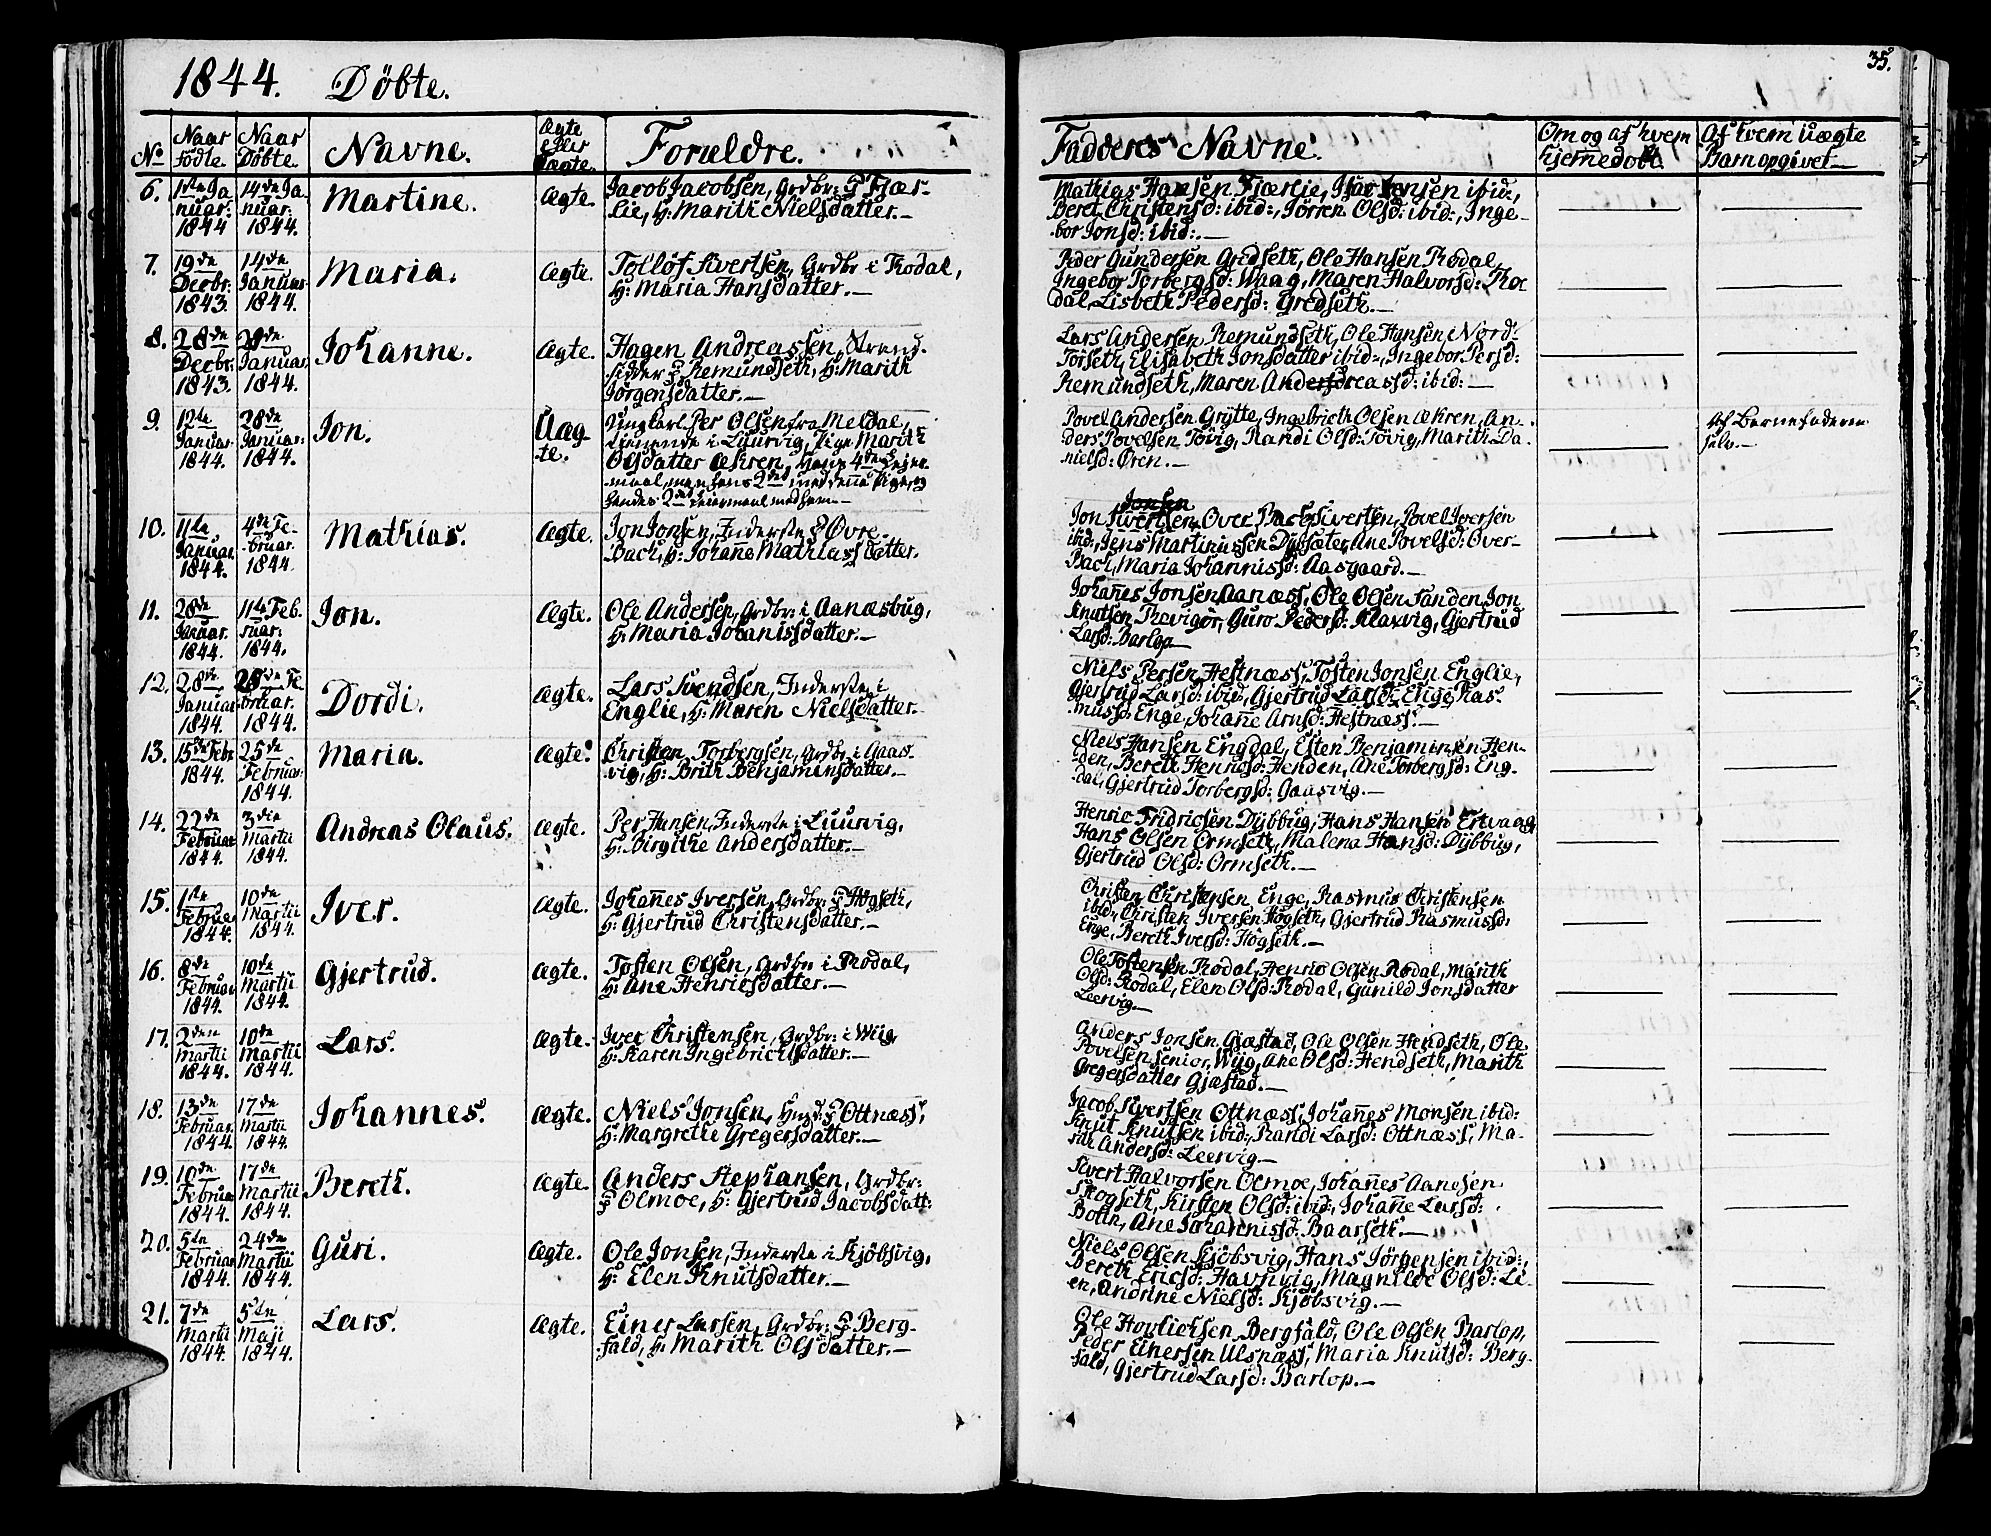 1844. Döbte.
35.
No Naar födte. Naar Döbte. Navne. Ægte eller Uægte. Forældre. Fadderes Navne. Om og af hvem hjemedöbt. Af hvem uægte Barn opgivet.
6. 1ste Januar: 1844 14de Januar: 1844. Martine. Ægte. Jacob Jacobsen, Grdbr: i Fjær-
lie, h: Marith Nielsdatter.—
Mathias Hansen Fjærlie, Isac Jensen ibid:,
Beret Christensd: ibid:, Jörren Olsd: ibid:, Inge-
bor Jonsd: ibid:.—
7. 19de Decbr: 1843. 14de Januar 1844. Maria. Ægte. Tolløf Sivertsen, Grdbr i Rodal,
h: Maria Hansdatter.—
Peder Gundersen Gredseth, Ole Hansen Rodal,
Ingebor Torbergsd: Waag, Maren Halvorsd: Ro-
dal, Lisbeth Pedersd: Gredseth.—
8. 28de Decbr: 1843. 21de Januar 1844. Johanne. Ægte. Hagen Andreassen, Strand-
sidder i Remundseth, h: Marith
Jörgensdatter.—
Lars Andersen Remundseth, Ole Hansen Nord-
Torseth, Elisabeth Jonsdatter ibid:, Ingebor Persd:
Remundseth, Maren Andreasd: ibid:—
9. 12te Januar 1844. 28de Januar: 1844. Jon. Uæg-
te. Ungkarl Per Olsen fra Meldal,
tienende i Liurvig, Pige Marith
Olsdatter Økren, hans 4de Leier-
maal, men hans 2det med denne Pige, og
hendes 2det Leiermaal med ham.—
Povel Andersen Grytte, Ingebricth Olsen Økren, An-
ders Povelsen Tövig, Randi Olsd: Tövig, Marith Da-
nielsd: Øren.—
Af Barnefaderen
selv.—
10. 11te Januar 1844. 4de Fe-
bruar. 1844. Mathias. Ægte. Jon Jonsen, Inderste i Øvre-
Bach, h: Johane Mathiasdatter.
Jonsen
Jon Sivertsen Over Bach, Sivertsen, Povel Iversen
ibid:, Jens Martinussen Dybsæter, Ane Povelsd: Over-
Bach, Maria Johannisd: Aasgaard.—
11. 28de Januar. 1844. 11te Feb.
ruar: 1844. Jon. Ægte. Ole Andersen, Grdbr: i Aanæsbug,
h: Maria Johanisdatter.—
Johañes Jonsen Aanæss, Ole Olsen Sanden, Jon
Knutsen Rovigör, Guro Pedersd: Klaxvig, Gjertrud
Larsd: Barlop.—
12. 28de Januar 1844. 25de Fe
bruar. 1844. Dordi. Ægte. Lars Svendsen, Inderste i
Englie, h: Maren Nielsdatter.
Niels Persen Hestnæss, Tosten Jonsen Englie,
Gjertrud Larsd: ibid:, Gjertrud Larsd: Enge, Ras-
musd: Enge, Johañe Arnsd: Hestnæss.—
13. 15de Febr. 1844. 25de Februar: 1844. Maria. Ægte. Christen Torbergsen, Grdbr: i Gaas-
vig, h: Brith Benjaminsdatter.—
Niels Hansen Engdal, Esten Benjaminsen Hen-
den, Bereth Henricsd: Henden, Ane Torbergsd: Eng-
dal, Gjertrud Torbergsd: Gaasvig.—
14. 22de Februar 1844. 3die Martii 1844. Andreas Olaus. Ægte. Per Hansen, Inderste i Liuurvig,
h: Birgithe Andersdatter.—
Henric Fridricsen Dÿbbug, Hans Hansen Ertvaag,
Hans Olsen Ormseth, Malena Hansd: Dÿbbug,
Gjertrud Olsd: Ormseth.—
15. 1ste Februar 1844. 10de Martii 1844. Iver. Ægte. Johañes Iversen, Grdbr: i Högseth,
h: Gjertrud Christensdatter.—
Christen Christensen Enge, Rasmus Christensen
ibid:, Christen Iversen Högseth, Gjertrud Rasmusd:
Enge, Bereth Iversd: Högseth.—
16. 8de Februar 1844. 10de Martii 1844. Gjertrud. Ægte. Tosten Olsen, Grdbr: i Rodal,
h: Ane Henricsdatter.—
Ole Tostensen Rodal, Henric Olsen Rodal, Marith
Olsd: Rodal, Elen Olsd: Rodal, Gunild Jonsdatter
Leervig.—
17. 2den Martii 1844. 10de Martii 1844. Lars. Ægte. Iver Christensen, Grdbr: i Wiig,
h: Karen Ingebrichtsdatter.—
Anders Jonsen Gjæstad, Ole Olsen Hendseth, Ole
Povelsen senior, Wiig, Ane Olsd: Hendseth, Marith
Gregersdatter Gjæstad.—
18. 13de Februar. 1844. 17de Martii 1844. Johannes. Ægte. Niels Jonsen, Hmd: i Ottnæss,
h: Margrethe Gregersdatter.—
Jacob Sivertsen Ottnæss, Johañes Monsen ibid:
Knut Knutsen ibid:, Randi Larsd: Ottnæss, Ma-
rit Andersd: Leervig.—
19. 10de Februar 1844. 17de Martii 1844. Bereth. Ægte. Anders Stephansen, Grdbr:
i Olmoe, h: Gjertrud Jacobsdatt:
Sivert Halvorsen Olmoe, Johañes Aanesen
Skogseth, Kirsten Olsd: ibid:, Johañe Larsd:
Botten, Ane Johannisd: Baarseth.—
20. 5te Februar 1844. 24de Martii 1844. Guri. Ægte. Ole Jonsen, Inderste i Kjöbsvig,
h: Elen Knutsdatter.—
Niels Olsen Kjöbsvig, Hans Jörgensen ibid:,
Bereth Ericsd: Havnvig, Magnilde Olsd: Li-
en, Andrine Nielsd: Kjöbsvig.—
21. 7de Marti 1844. 5te Maji 1844. Lars. Ægte. Einer Larsen, Grdbr: i Berg-
sald, h: Marith Olsdatter.—
Ole Hovlichsen Bergsald, Ole Olsen Barlop,
Peder Einersen Ulsnæss, Maria Knutsd: Berg-
sald, Gjertrud Larsd: Barlop.—